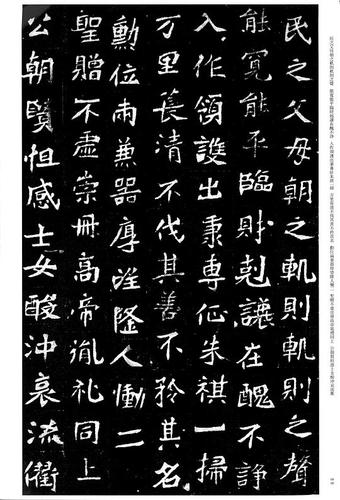 民之父母朝之軌則軌則之聲
能寬能平臨財尅讓在醜不諍
入作領護出秉專征朱祺一掃
万里萇清不伐其善不矜其名
勳位兩兼器厚隆人慟二
聖贈不虛崇冊高帝胤礼同上
公朝賢怛感士女酸沖哀流衢